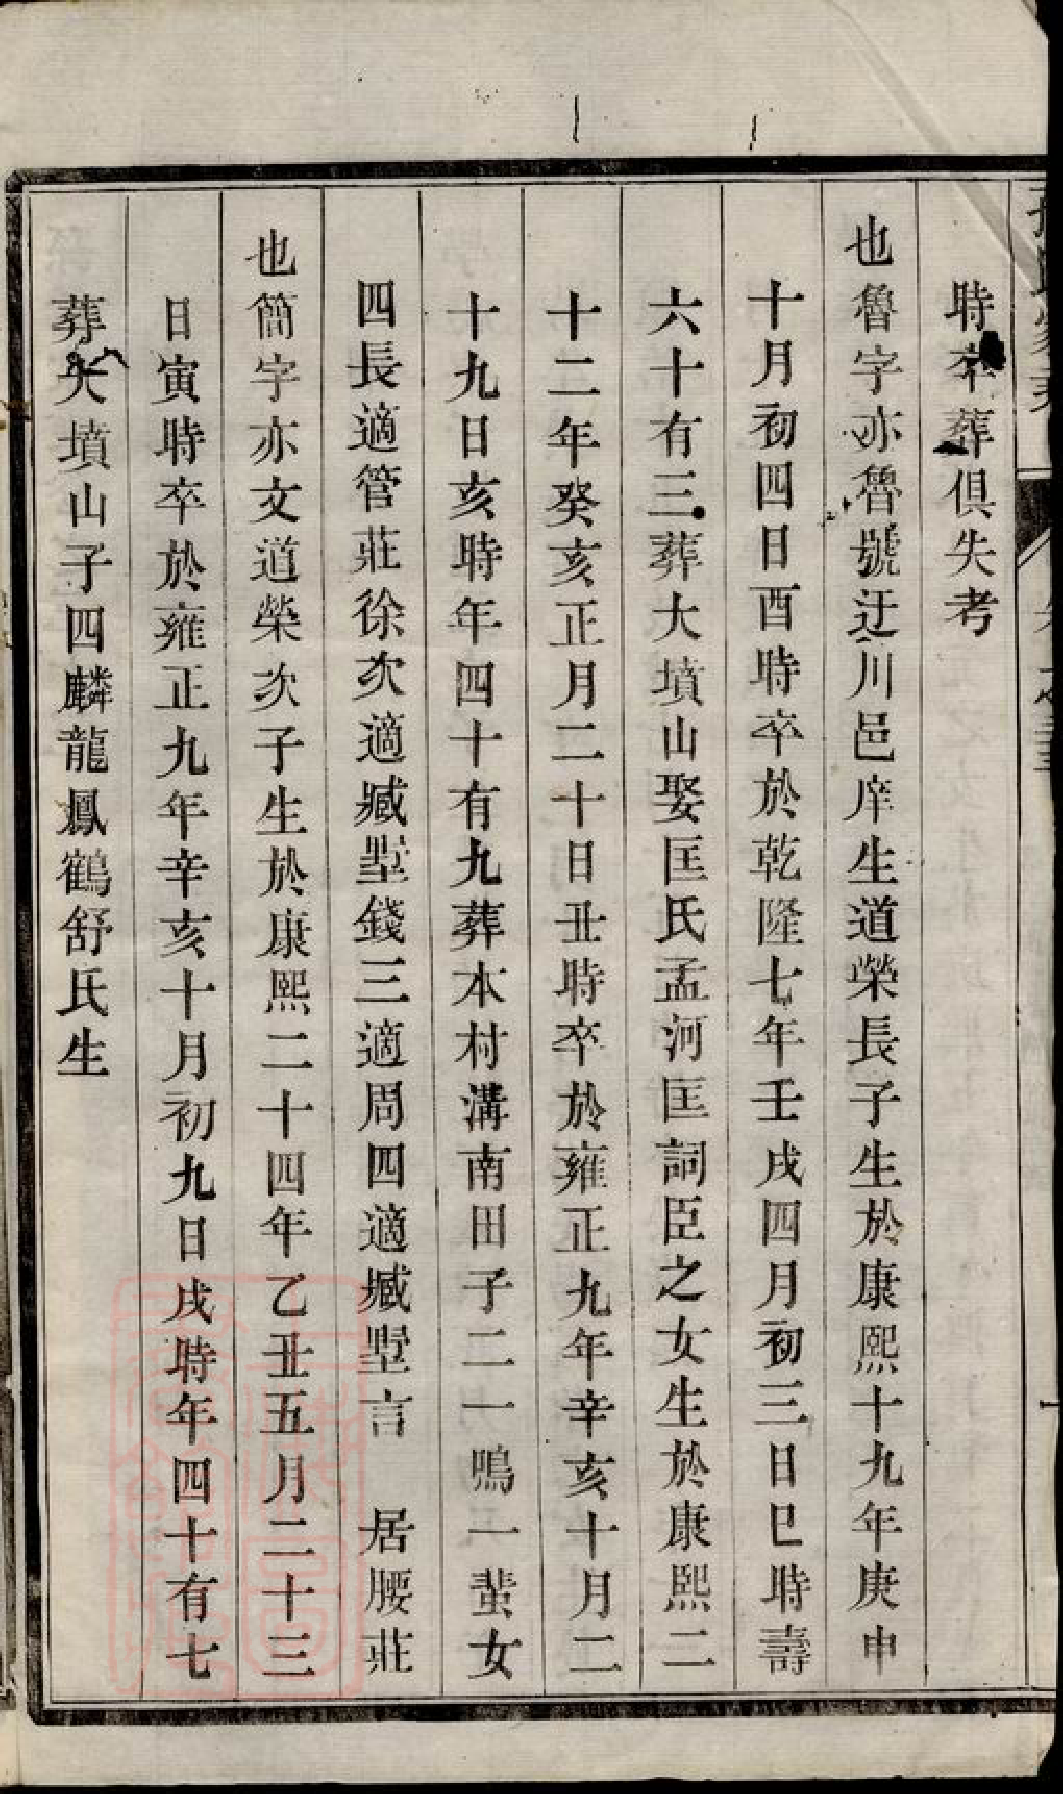 時卒葬俱失考
也魯字亦魯號迂川邑庠生道榮長子生於康熙十九年庚申
十月初四日酉時卒於乾隆七年壬戌四月初三日巳時壽
六十有三葬大墳山娶匡氏孟河匡詞臣之女生於康熙二
十二年癸亥正月二十日丑時卒於雍正九年辛亥十月二
十九日亥時年四十有九葬本村溝南田子二一鳴一蜚女
四長適管莊徐次適臧墅錢三適周四適臧墅言 居腰莊
也簡字亦文道榮次子生於康熙二十四年乙丑五月二十三
日寅時卒於雍正九年辛亥十月初九日戌時年四十有七
葬大墳山子四麟龍鳳鶴舒氏生